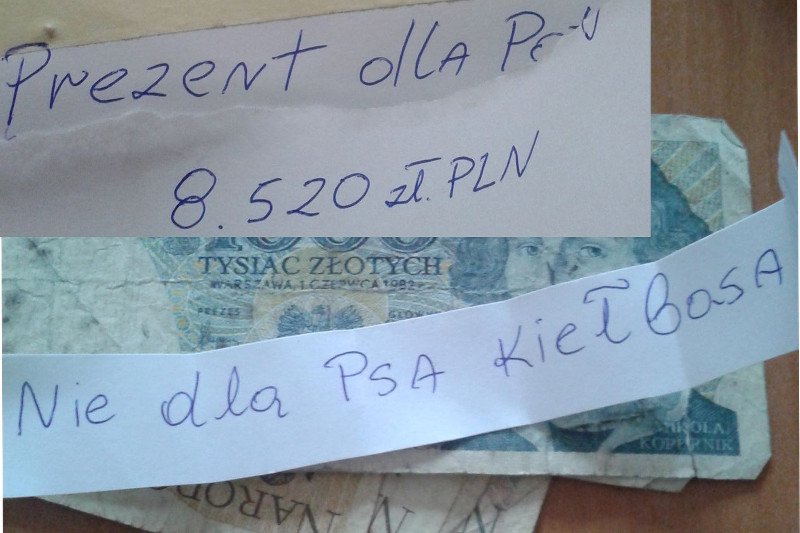 Prezent dla
8.520 zł. PLN
TYSIĄC ZŁOTYCH
WARSZAWA, 1 CZERWCA 1982 r.
PREZES
Nie dla PSA Kiełbasa
KOPERNIK